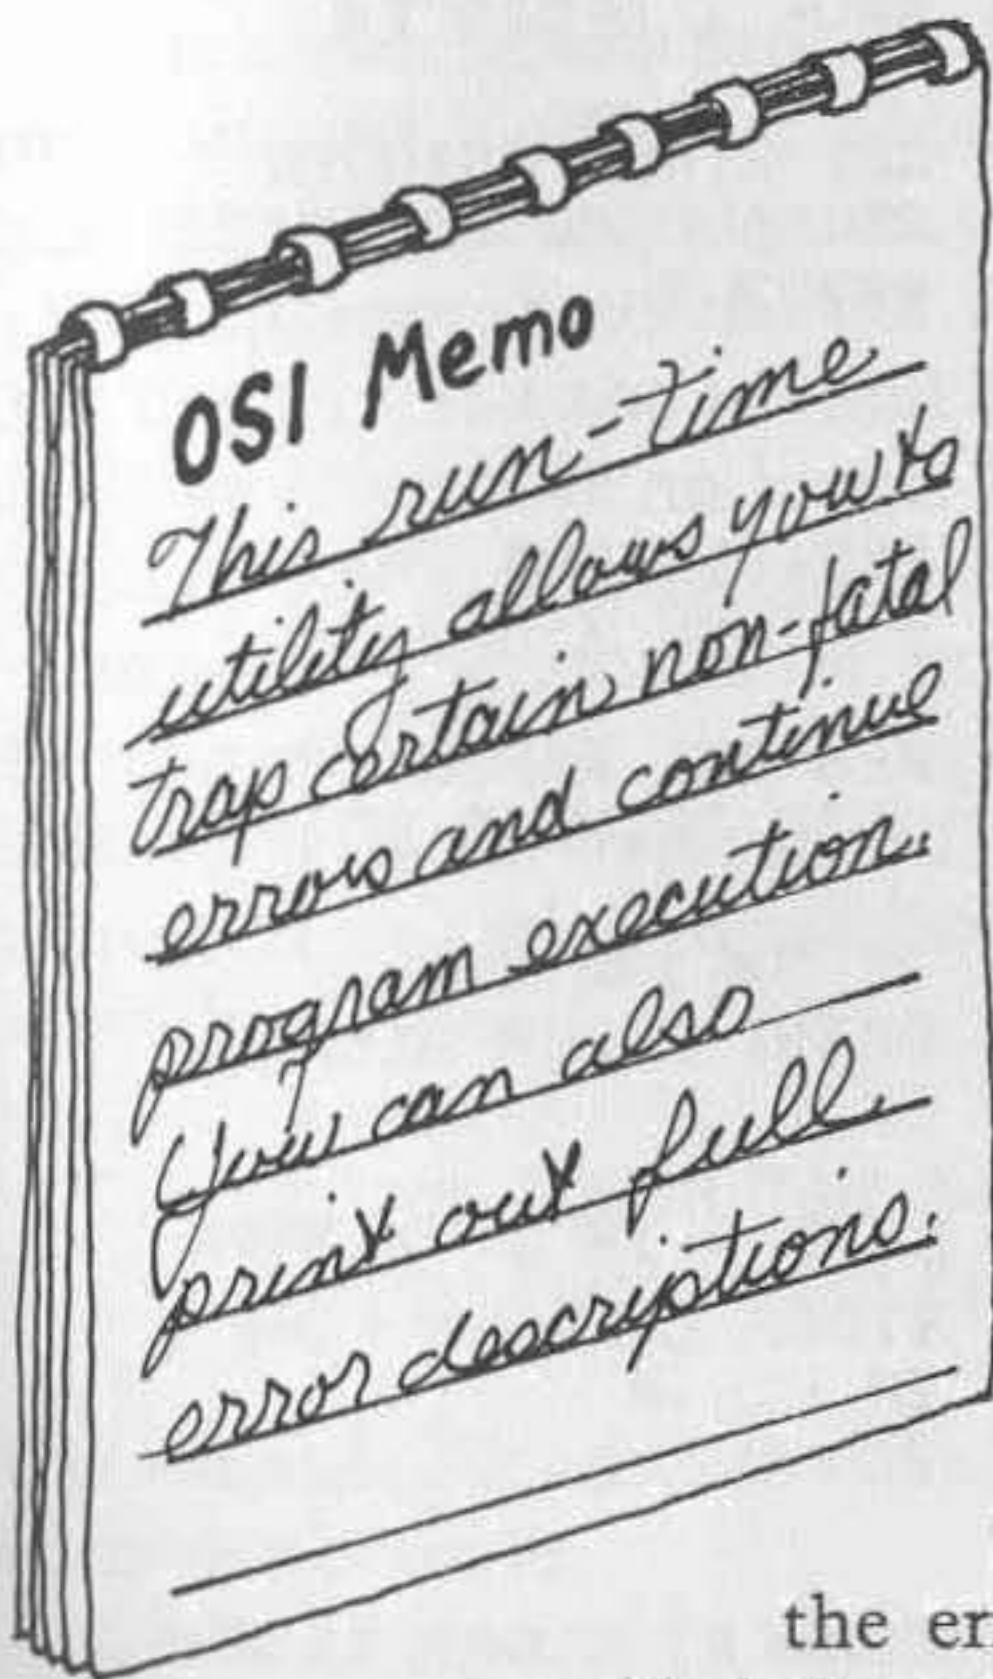 OSI Memo
This run-time
utility allows you to
trap certain non-fatal
errors and continue
program execution.
You can also
print out full
error descriptions.
the er